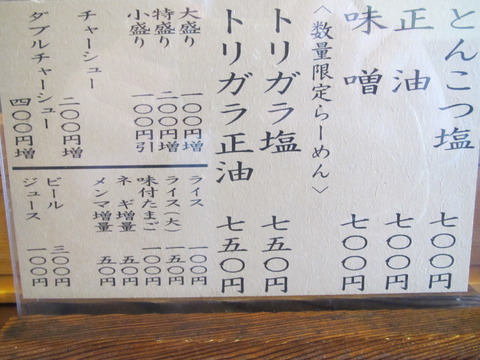 とんこつ塩 七〇〇円
正油 七〇〇円
味噌 七〇〇円
〈数量限定らーめん〉
トリガラ塩 七五〇円
トリガラ正油 七五〇円
大盛り 一〇〇円増
特盛り 二〇〇円増
小盛り 一〇〇円引
チャーシュー 二〇〇円増
ダブルチャーシュー 四〇〇円増
ライス 一〇〇円
ライス(大) 一五〇円
味付たまご 一〇〇円
ネギ増量 五〇円
メンマ増量 五〇円
ビール 三〇〇円
ジュース 一〇〇円